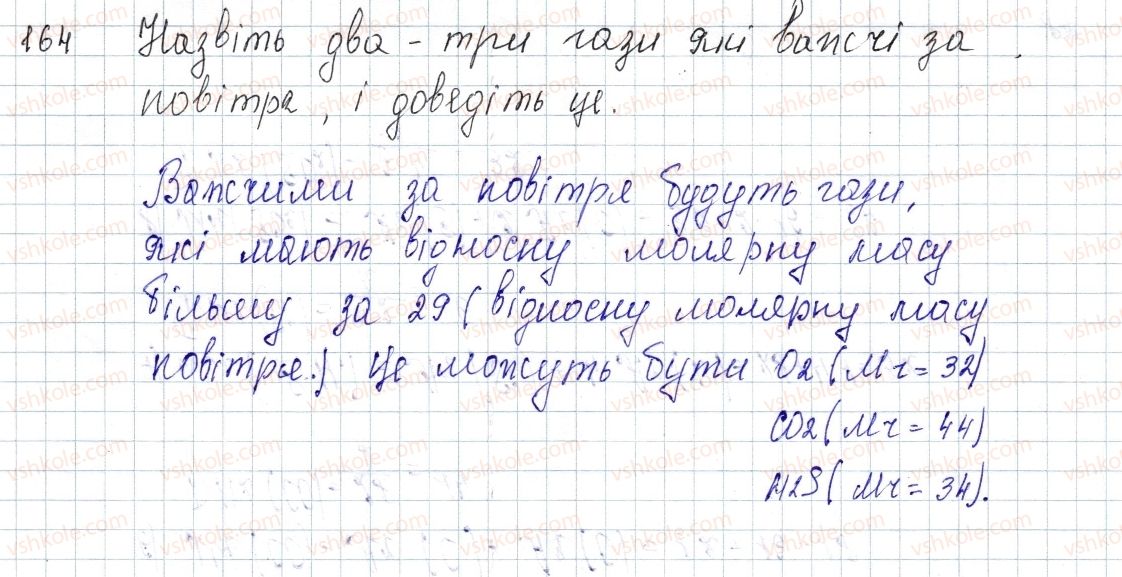 164 Назвіть два - три гази які важчі за
повітря, і доведіть це.
Важчими за повітря будуть гази,
які мають відносну молярну масу
більшу за 29 (відносну молярну масу
повітря.) Це можуть бути O2 (Mr = 32)
CO2 (Mr = 44)
H2S (Mr = 34).